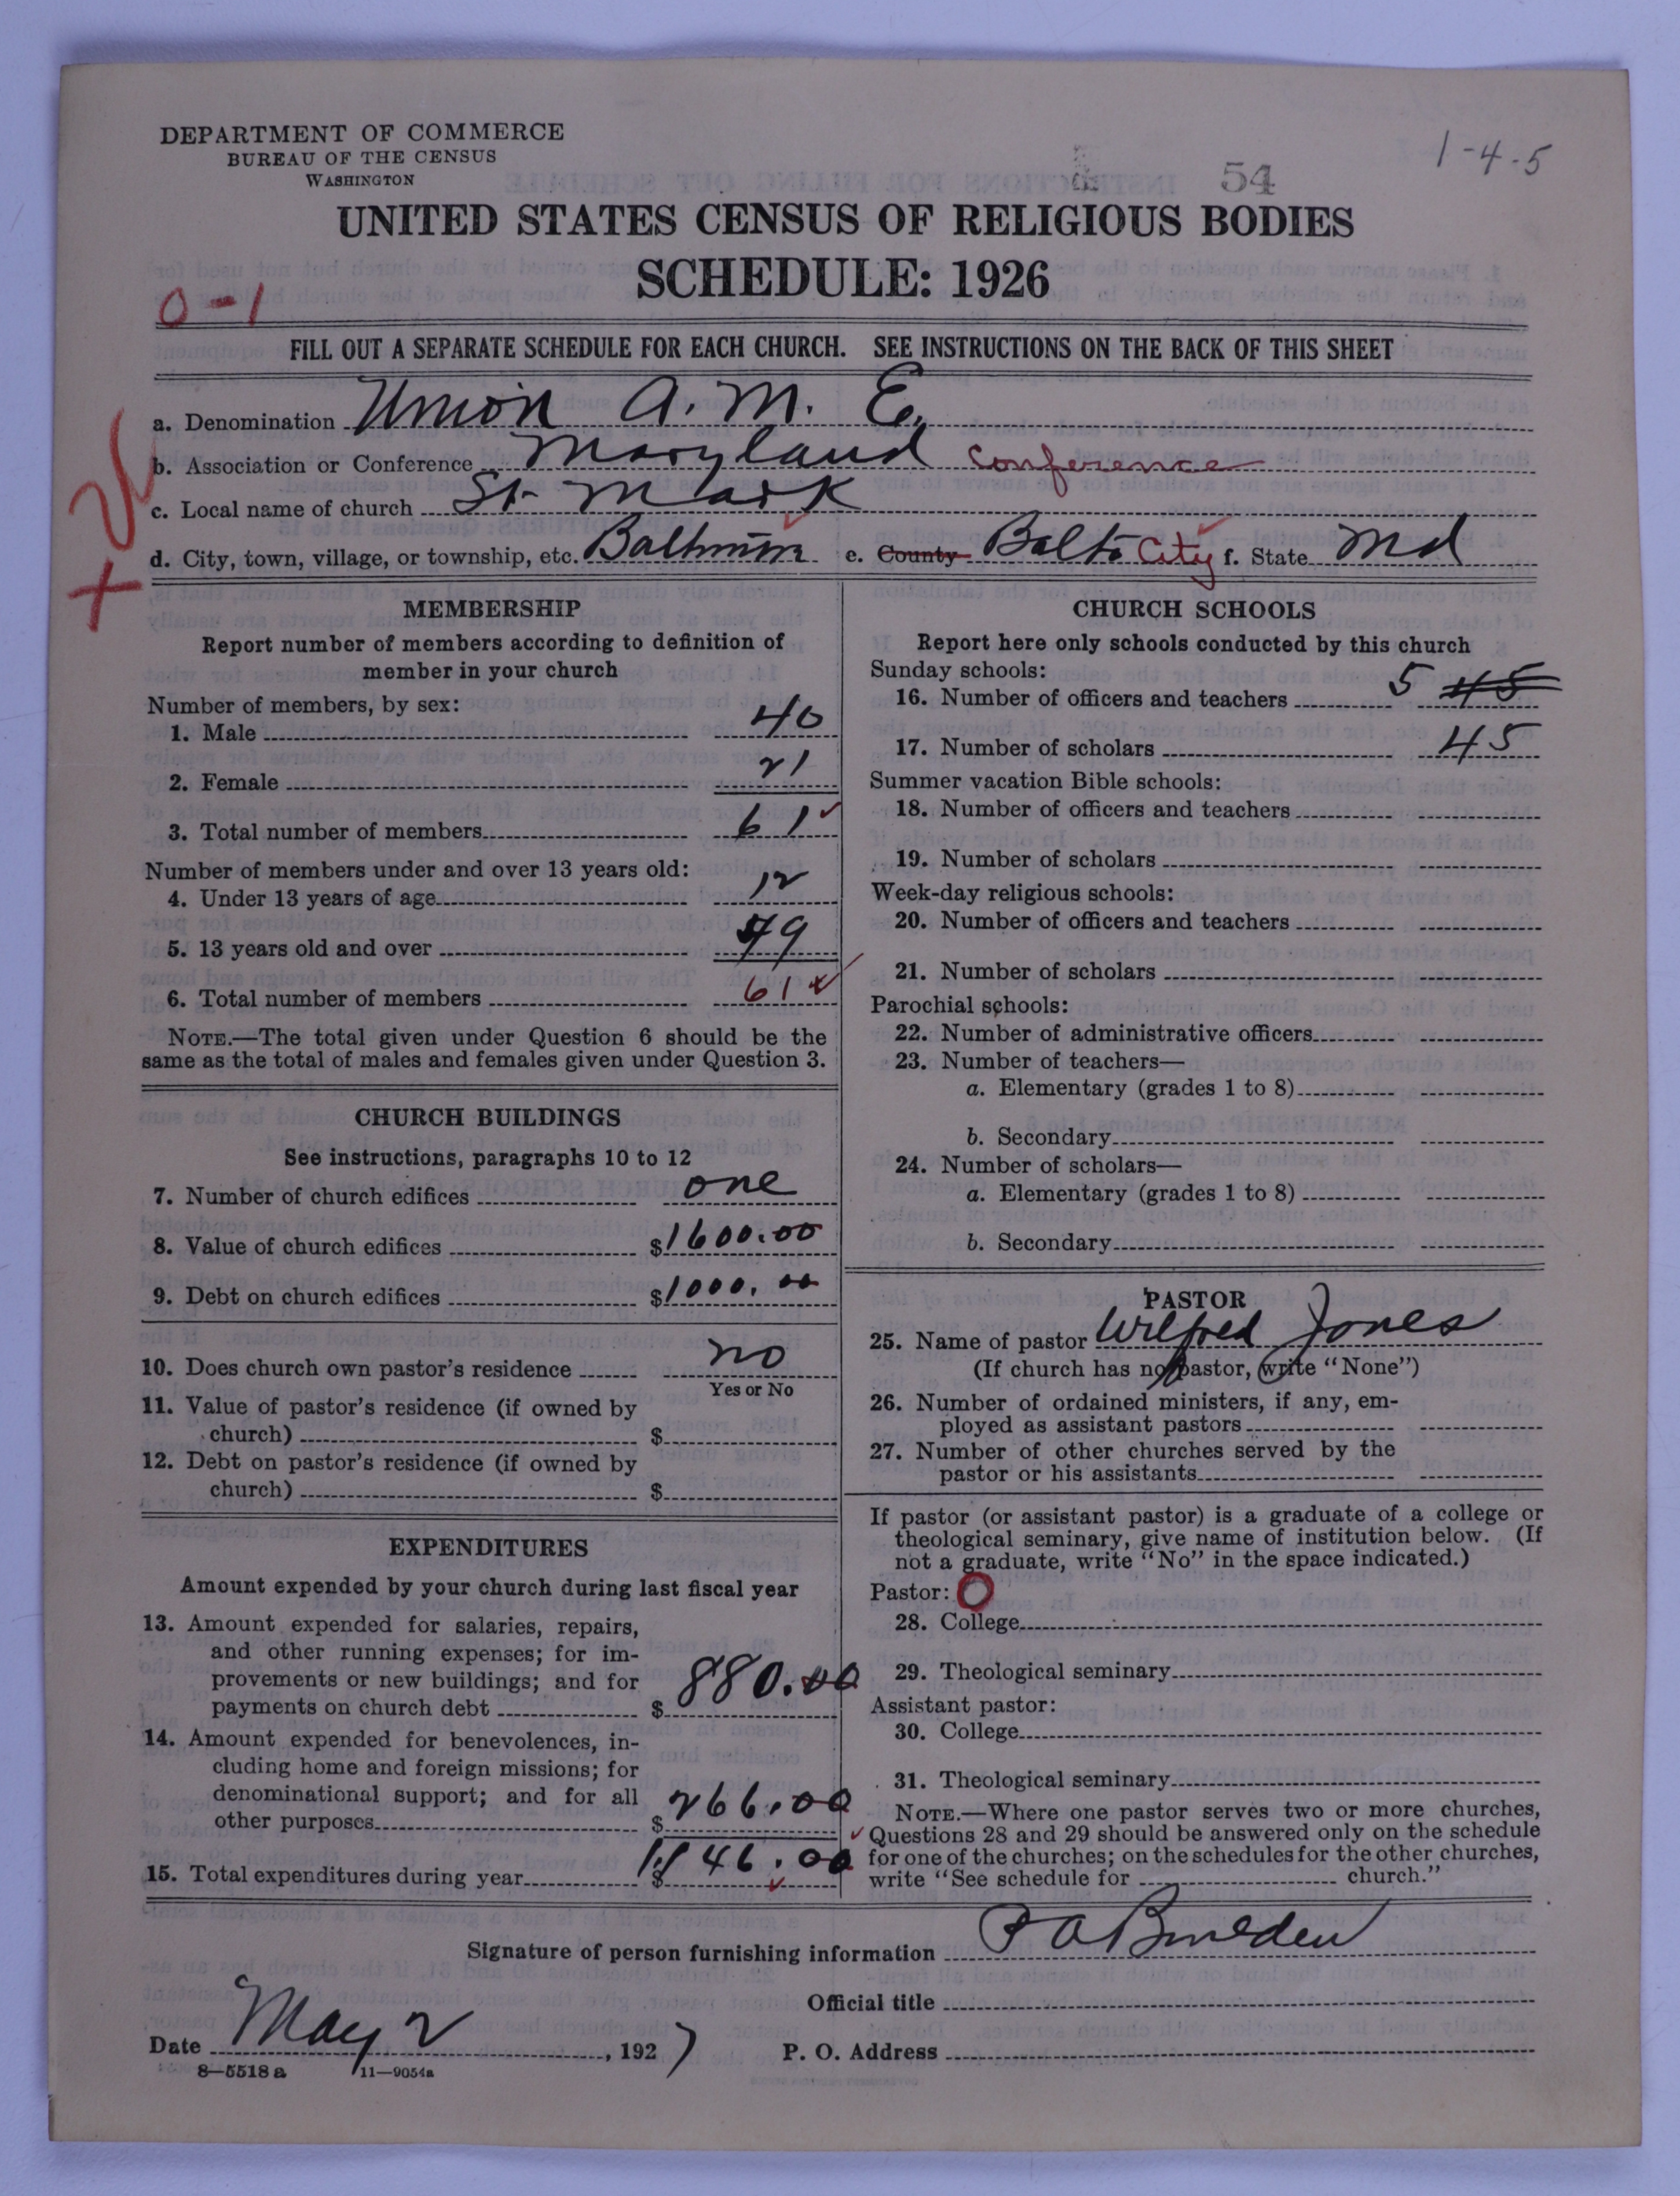 DEPARTMENT OF COMMERCE
BUREAU OF THE CENSUS
WASHINGTON
54
1-4-5
UNITED STATES CENSUS OF RELIGIOUS BODIES
SCHEDULE: 1926
0-1
FILL OUT A SEPARATE SCHEDULE FOR EACH CHURCH. SEE INSTRUCTIONS ON THE BACK OF THIS SHEET
a. Denomination Union A. M. E.
b. Association or Conference Maryland Conference
c. Local name of church St Mark
d. City, town, village, or township, etc. Baltimore e. County Balto City f. State Md
MEMBERSHIP
Report number of members according to definition of
member in your church
Number of members, by sex:
1. Male 40
2. Female 21
3. Total number of members 61
Number of members under and over 13 years old:
4. Under 13 years of age 12
5. 13 years old and over 49
6. Total number of members 61
NOTE.—The total given under Question 6 should be the
same as the total of males and females given under Question 3.
CHURCH BUILDINGS
See instructions, paragraphs 10 to 12
7. Number of church edifices one
8. Value of church edifices $1600.00
9. Debt on church edifices $1000.00
10. Does church own pastor's residence no
Yes or No
11. Value of pastor's residence (if owned by
church) $
12. Debt on pastor's residence (if owned by
church) $
EXPENDITURES
Amount expended by your church during last fiscal year
13. Amount expended for salaries, repairs,
and other running expenses; for im-
provements or new buildings; and for
payments on church debt $ 880.00
14. Amount expended for benevolences, in-
cluding home and foreign missions; for
denominational support; and for all
other purposes $ 266.00
15. Total expenditures during year $ 1146.00
CHURCH SCHOOLS
Report here only schools conducted by this church
Sunday schools:
16. Number of officers and teachers 5 45
17. Number of scholars 45
Summer vacation Bible schools:
18. Number of officers and teachers
19. Number of scholars
Week-day religious schools:
20. Number of officers and teachers
21. Number of scholars
Parochial schools:
22. Number of administrative officers
23. Number of teachers—
a. Elementary (grades 1 to 8)
b. Secondary
24. Number of scholars—
a. Elementary (grades 1 to 8)
b. Secondary
PASTOR
25. Name of pastor Wilfred Jones
(If church has no pastor, write "None")
26. Number of ordained ministers, if any, em-
ployed as assistant pastors
27. Number of other churches served by the
pastor or his assistants
If pastor (or assistant pastor) is a graduate of a college or
theological seminary, give name of institution below. (If
not a graduate, write "No" in the space indicated.)
Pastor: O
28. College
29. Theological seminary
Assistant pastor:
30. College
31. Theological seminary
NOTE.—Where one pastor serves two or more churches,
Questions 28 and 29 should be answered only on the schedule
for one of the churches; on the schedules for the other churches,
write "See schedule for church."
Signature of person furnishing information
Official title
Date May 2, 1927 P. O. Address
8—5518 a 11—9054a